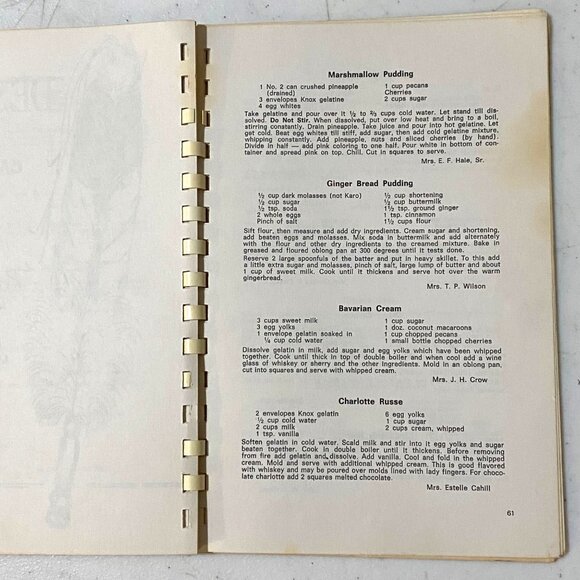 Marshmallow Pudding
1 No. 2 can crushed pineapple
(drained)
3 envelopes Knox gelatine
4 egg whites
1 cup pecans
Cherries
2 cups sugar
Take gelatine and pour over it ½ to ⅔ cups cold water. Let stand till dis-
solved. Do Not Stir. When dissolved, put over low heat and bring to a boil,
stirring constantly. Drain pineapple. Take juice and pour into hot gelatine. Let
get cold. Beat egg whites till stiff, add sugar, then add cold gelatine mixture,
whipping constantly. Add pineapple, nuts and sliced cherries (by hand).
Divide in half — add pink coloring to one half. Pour white in bottom of con-
tainer and spread pink on top. Chill. Cut in squares to serve.
Mrs. E. F. Hale, Sr.
Ginger Bread Pudding
½ cup dark molasses (not Karo)
½ cup sugar
½ tsp. soda
2 whole eggs
Pinch of salt
½ cup shortening
½ cup buttermilk
1½ tsp. ground ginger
1 tsp. cinnamon
1½ cups flour
Sift flour, then measure and add dry ingredients. Cream sugar and shortening,
add beaten eggs and molasses. Mix soda in buttermilk and add alternately
with the flour and other dry ingredients to the creamed mixture. Bake in
greased and floured oblong pan at 300 degrees until it tests done.
Reserve 2 large spoonfuls of the batter and put in heavy skillet. To this add
a little extra sugar and molasses, pinch of salt, large lump of butter and about
1 cup of sweet milk. Cook until it thickens and serve hot over the warm
gingerbread.
Mrs. T. P. Wilson
Bavarian Cream
3 cups sweet milk
3 egg yolks
1 envelope gelatin soaked in
¼ cup cold water
1 cup sugar
1 doz. coconut macaroons
1 cup chopped pecans
1 small bottle chopped cherries
Dissolve gelatin in milk, add sugar and egg yolks which have been whipped
together. Cook until thick in top of double boiler and when cool add a wine
glass of whiskey or sherry and the other ingredients. Mold in an oblong pan,
cut into squares and serve with whipped cream.
Mrs. J. H. Crow
Charlotte Russe
2 envelopes Knox gelatin
½ cup cold water
2 cups milk
1 tsp. vanilla
6 egg yolks
1 cup sugar
2 cups cream, whipped
Soften gelatin in cold water. Scald milk and stir into it egg yolks and sugar
beaten together. Cook in double boiler until it thickens. Before removing
from fire add gelatin and dissolve. Add vanilla. Cool and fold in the whipped
cream. Mold and serve with additional whipped cream. This is good flavored
with whiskey and may be poured over molds lined with lady fingers. For choc-
olate charlotte add 2 squares melted chocolate.
Mrs. Estelle Cahill
61